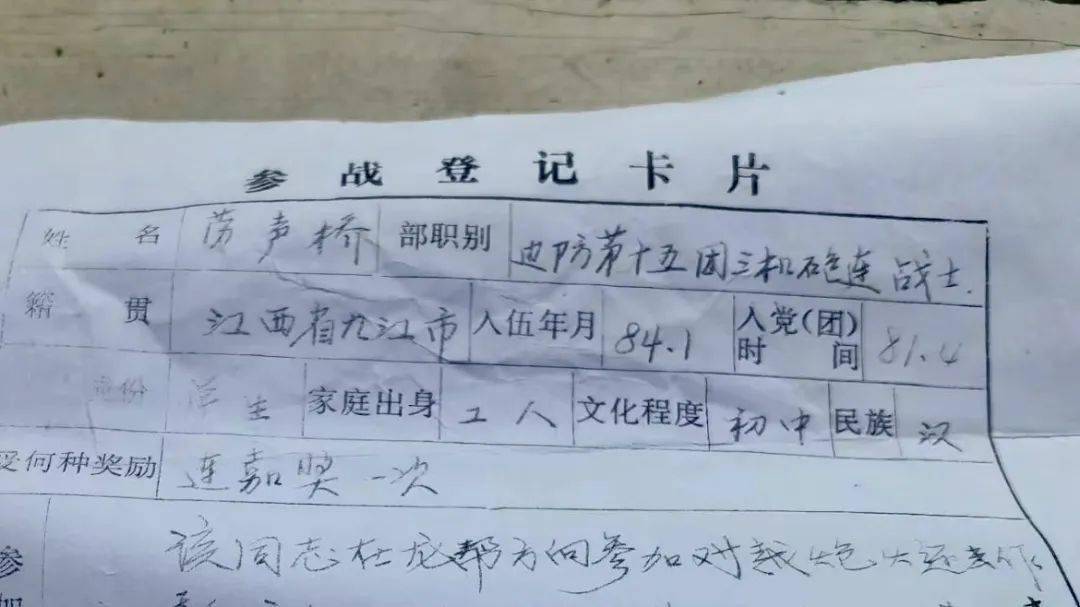 参战登记卡片
姓名 劳声桥 部职别 边防第十五团三机炮连战士.
籍贯 江西省九江市 入伍年月 84.1 入党(团)时间 81.4
身份 学生 家庭出身 工人 文化程度 初中 民族 汉
受何种奖励 连嘉奖一次
参加 该同志在龙帮方向参加对越炮火还击作